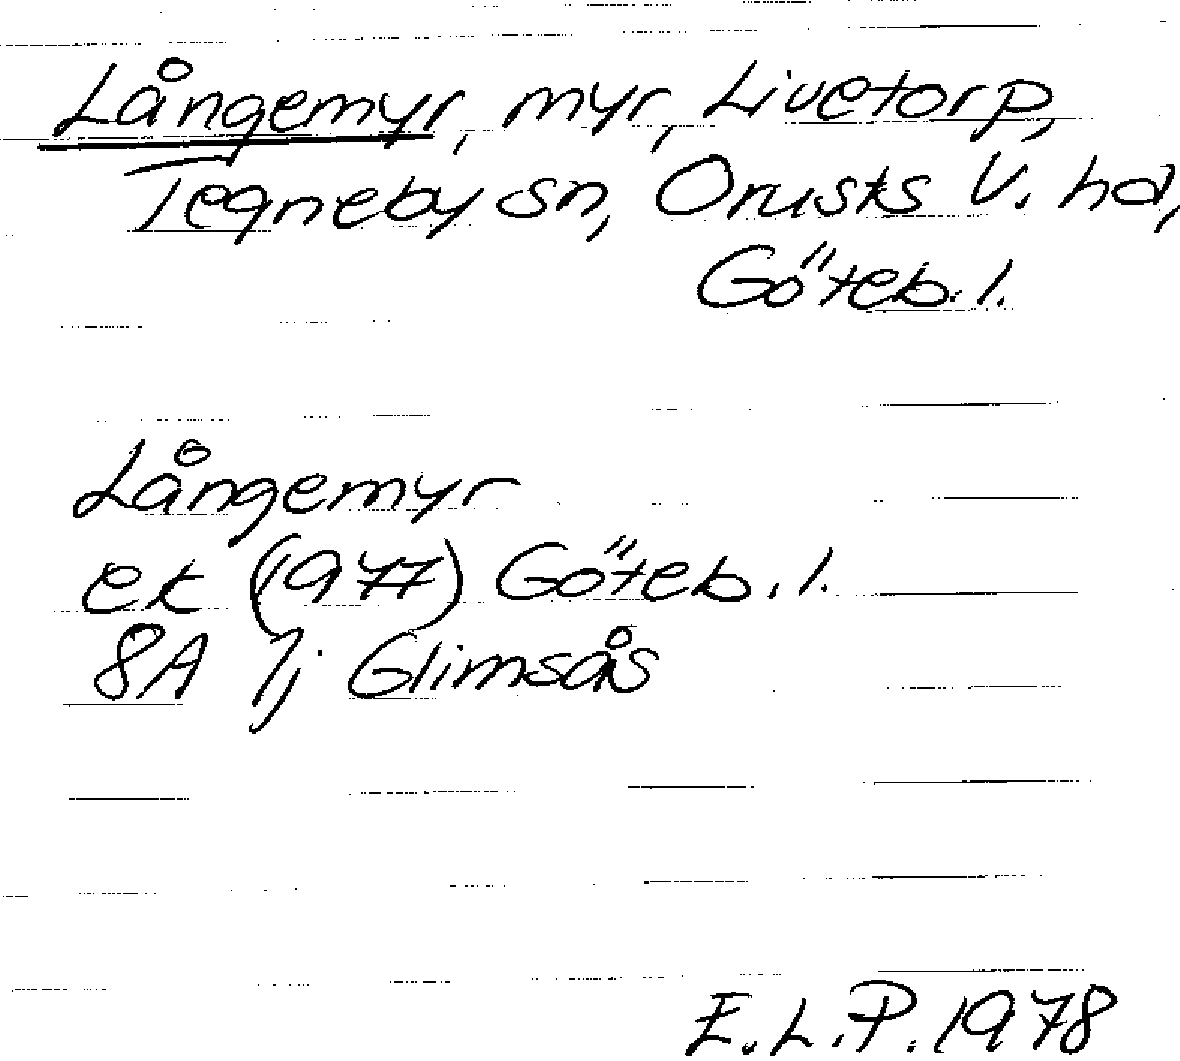 Långemyr, myr, Livetorp,
Tegneby sn, Orusts V. hd,
Göteb. l.
Långemyr
ek (1977) Göteb. l.
8A 1j Glimsås
E.L.P. 1978